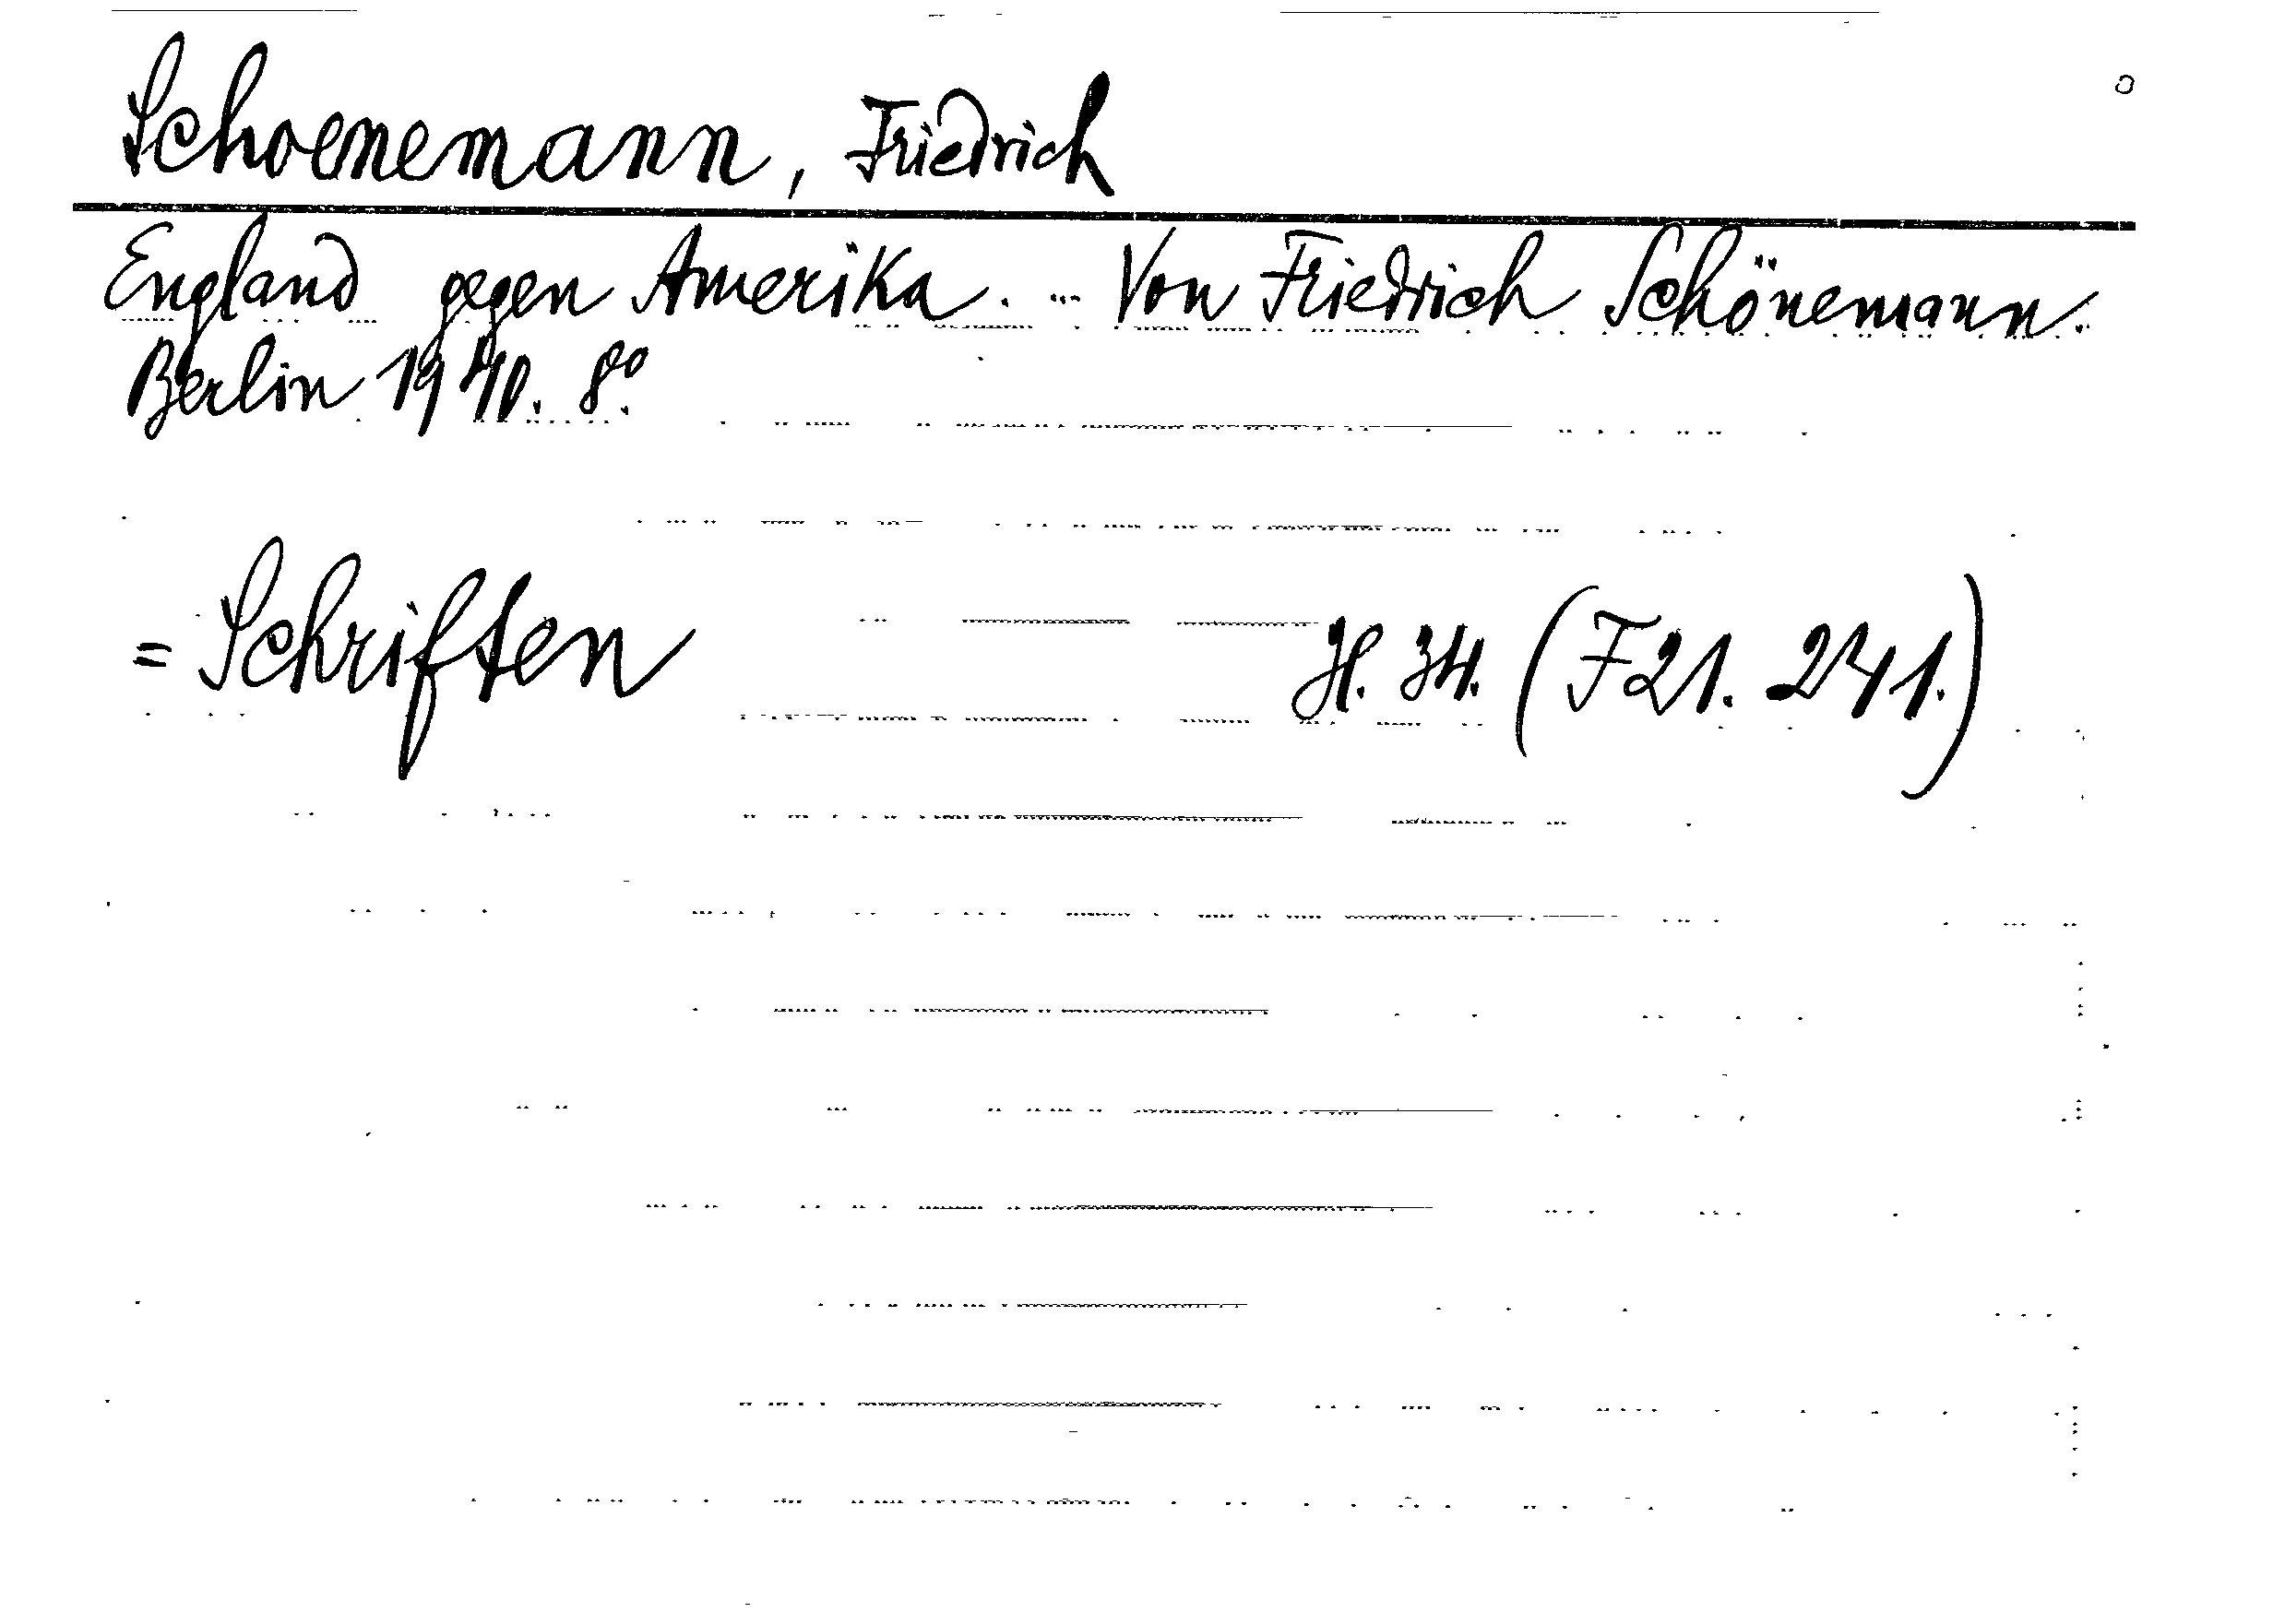 Schoenemann, Friedrich
England gegen Amerika. ... Von Friedrich Schönemann.
Berlin 1940. 8°.
= Schriften H. 34. (F21. 241.)